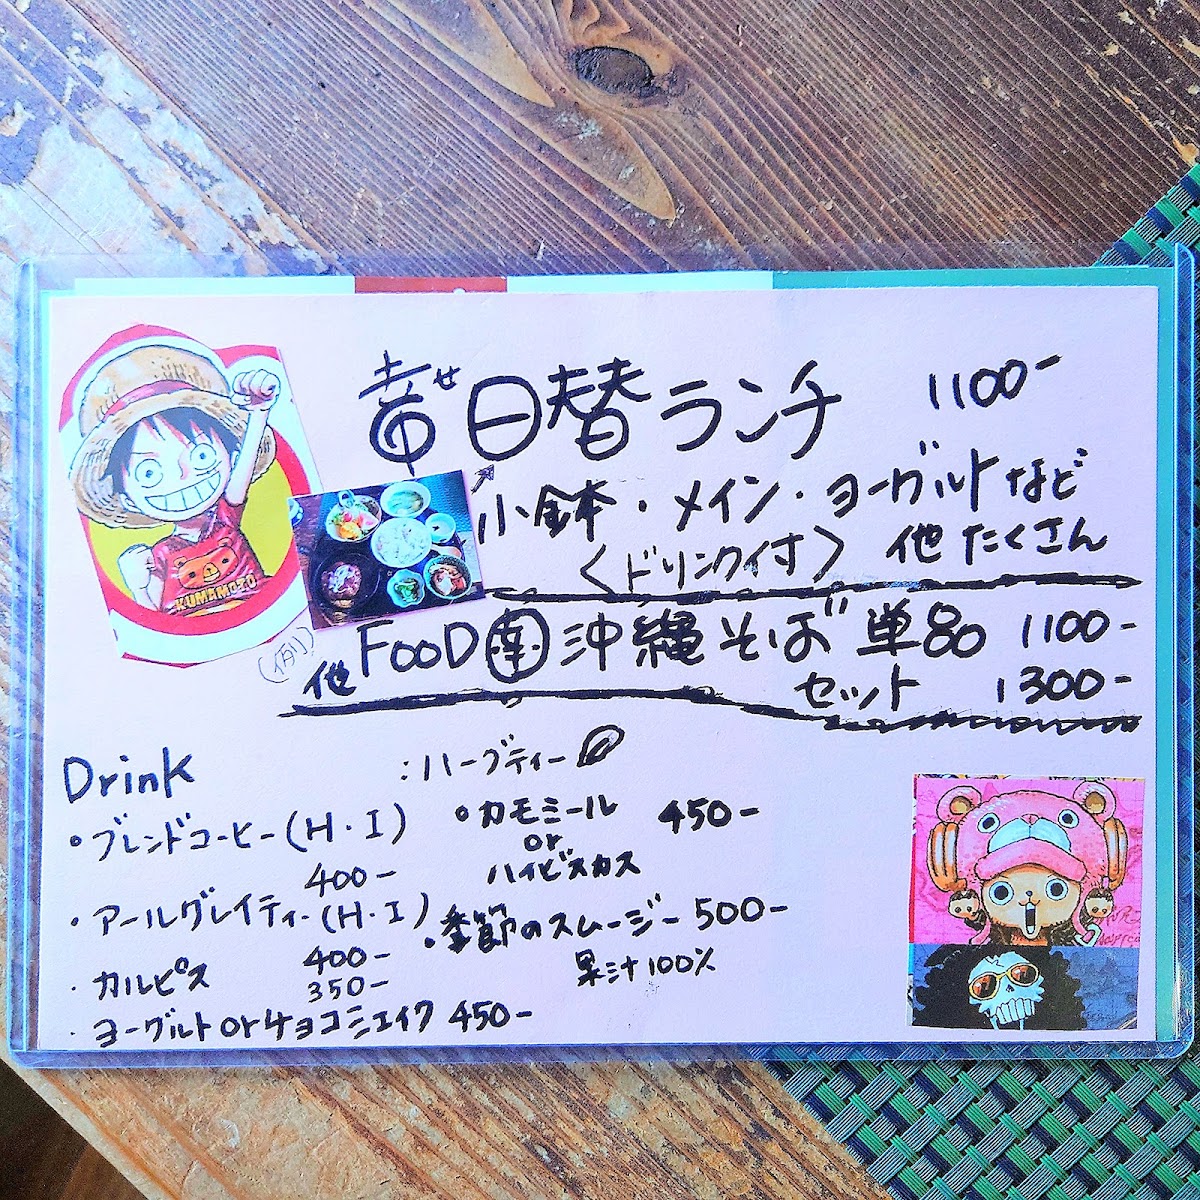 幸せ日替ランチ 1100-
小鉢・メイン・ヨーグルトなど
〈ドリンク付〉 他たくさん
KUMAMOTO
(例)
他 FooD 沖縄そば 単品 1100-
セット 1300-
Drink
・ブレンドコーヒー(H・I)
400-
・アールグレイティー(H・I)
400-
・カルピス 350-
・ヨーグルトorチョコミェイク 450-
:ハーブティー
・カモミール 450-
or
ハイビスカス
・季節のスムージー 500-
果汁100%